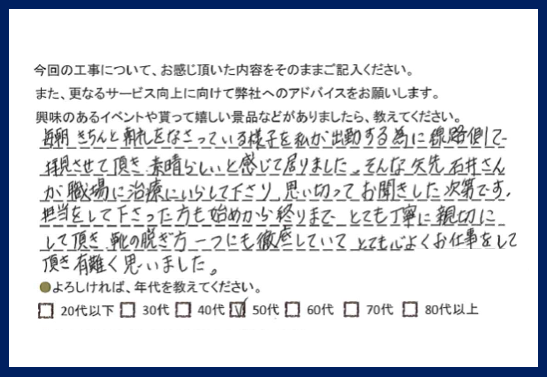 今回の工事について、お感じ頂いた内容をそのままご記入ください。
また、更なるサービス向上に向けて弊社へのアドバイスをお願いします。
興味のあるイベントや貰って嬉しい景品などがありましたら、教えてください。
毎朝 きちんと朝礼をなさっている様子を私が出勤する為に線路側で
拝見させて頂き 素晴らしいと感じて居りました。そんな矢先 石井さん
が 職場に治療にいらして下さり、思い切ってお聞きした次第です。
担当をして下さった方も始めから終りまで とても丁寧に親切に
して頂き 靴の脱ぎ方一つにも徹底していて とても心よくお仕事をして
頂き有難く思いました。
●よろしければ、年代を教えてください。
□ 20代以下 □ 30代 □ 40代 ☑ 50代 □ 60代 □ 70代 □ 80代以上